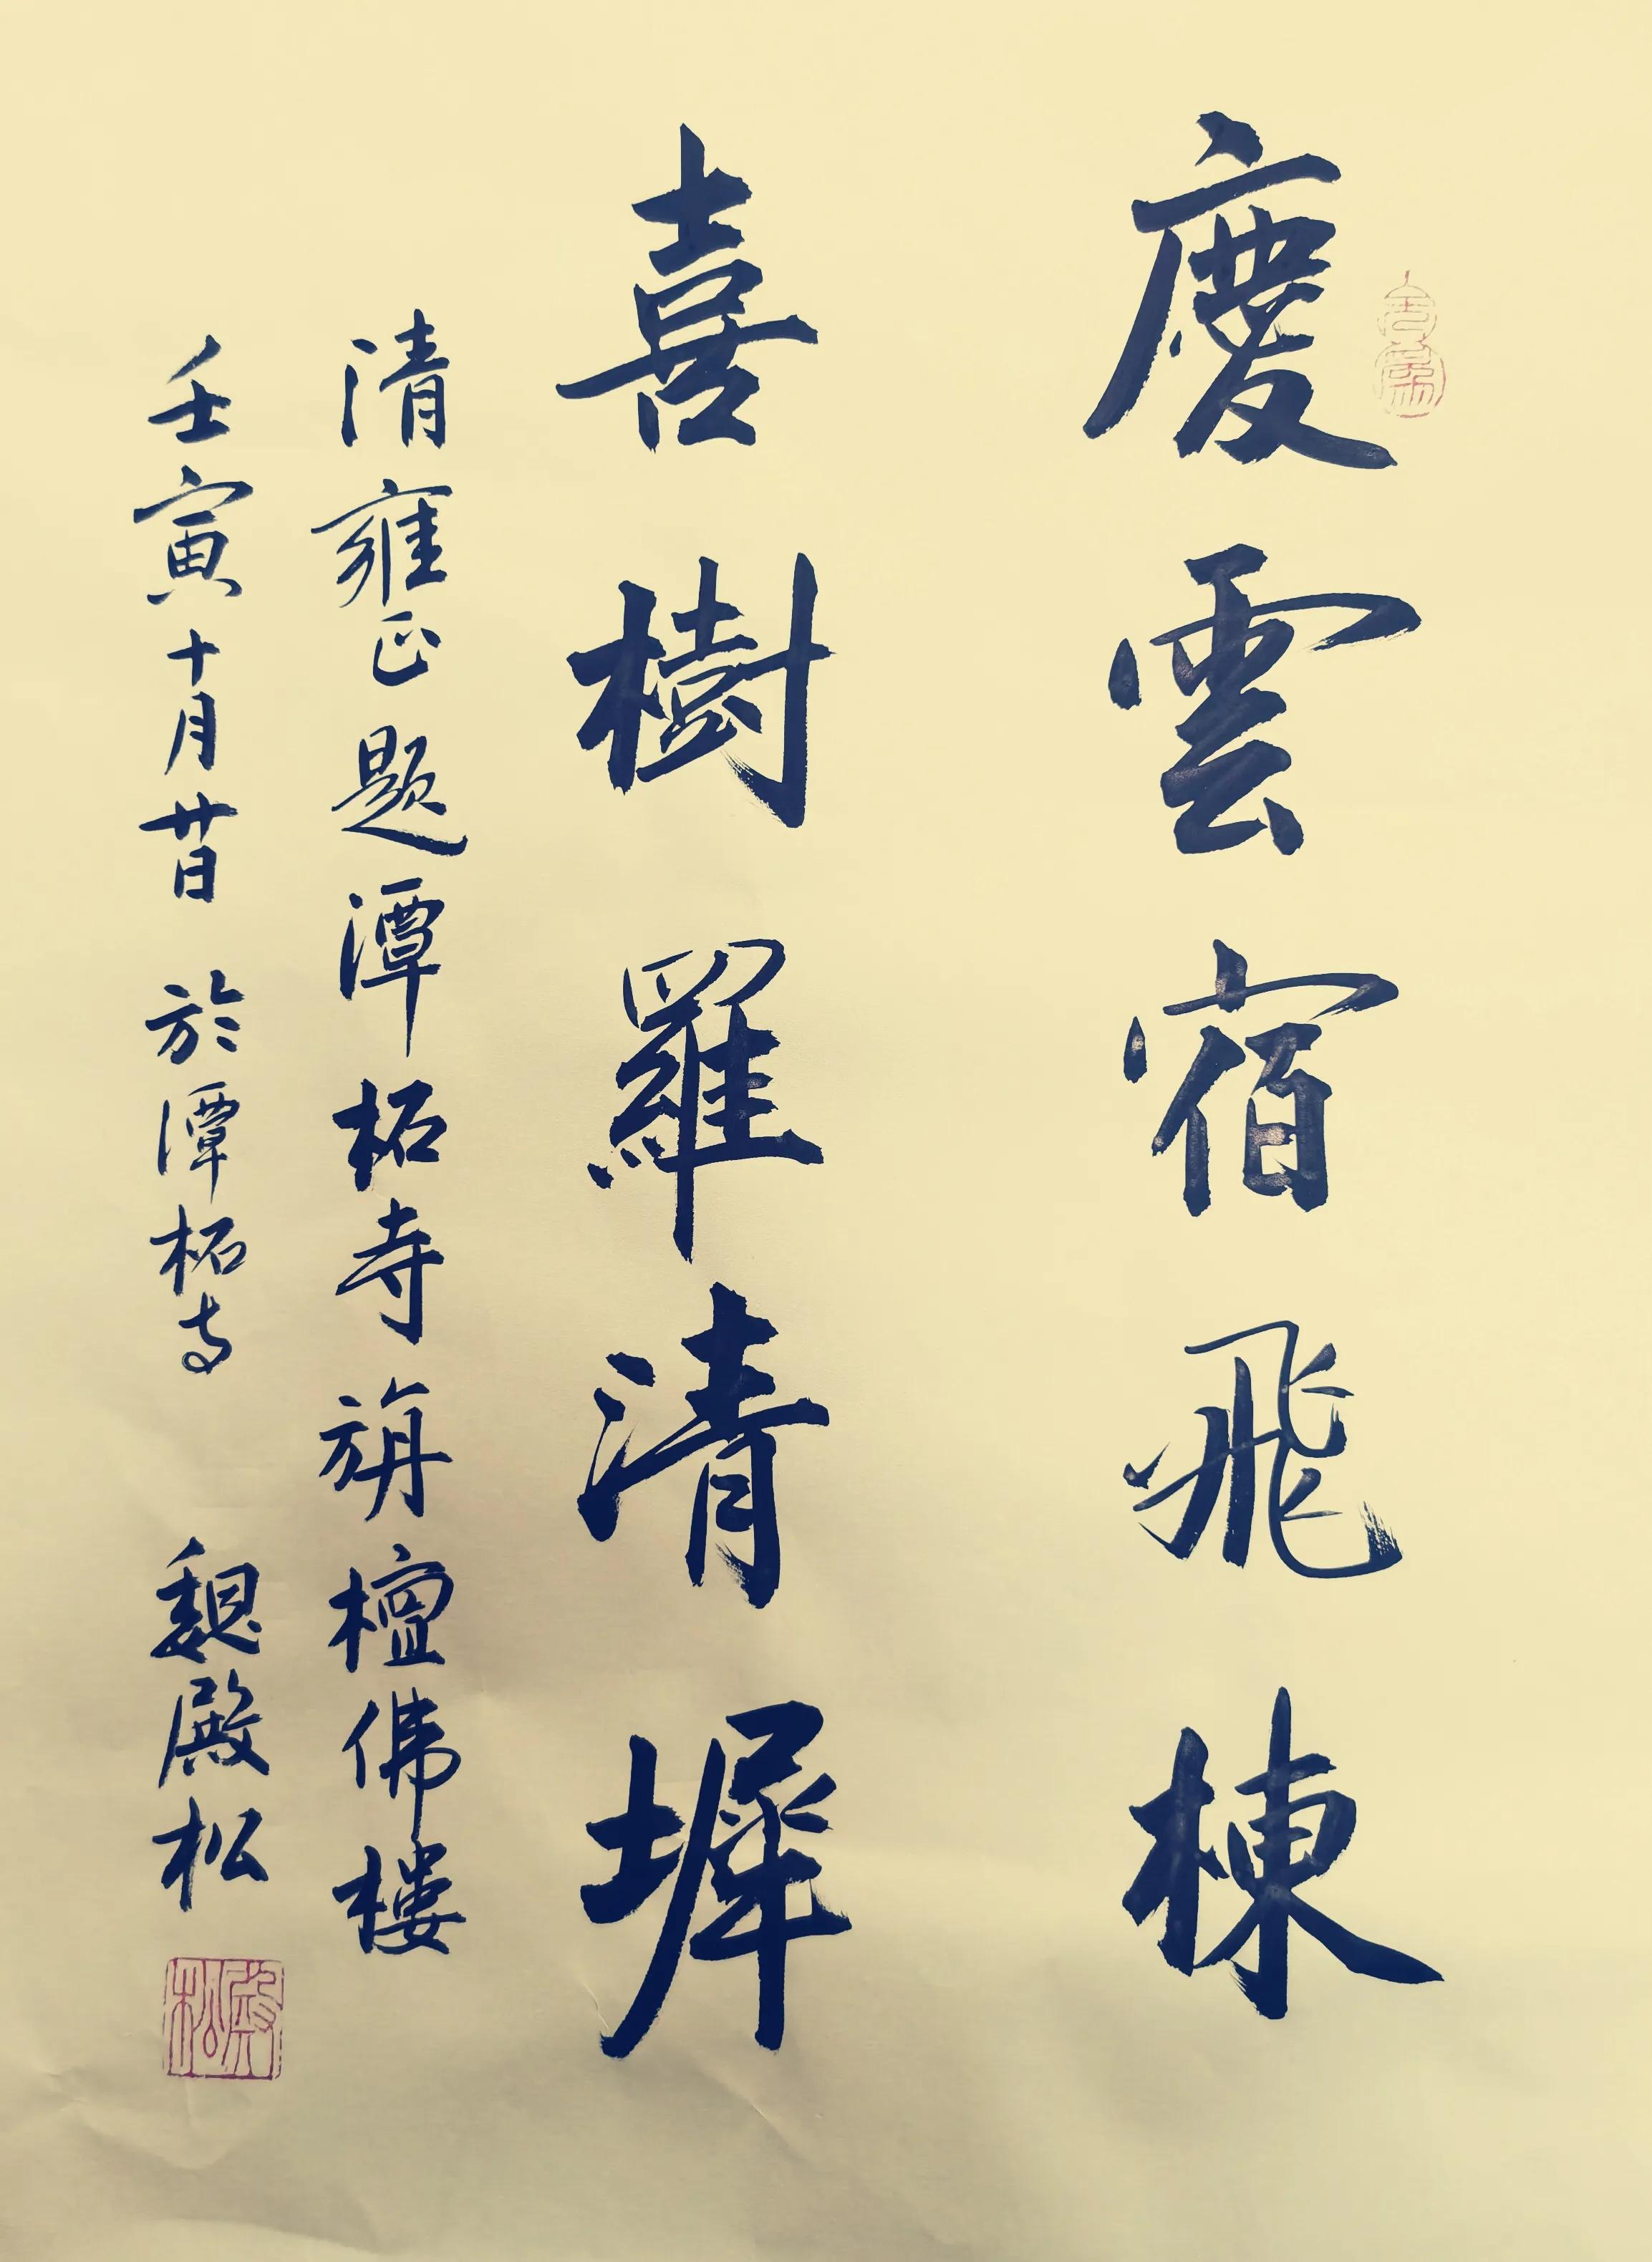 慶雲宿飛棟
喜樹羅清墀
清雍正题潭柘寺旃檀佛樓
壬寅十月廿日於潭柘寺魏殿松
殿松